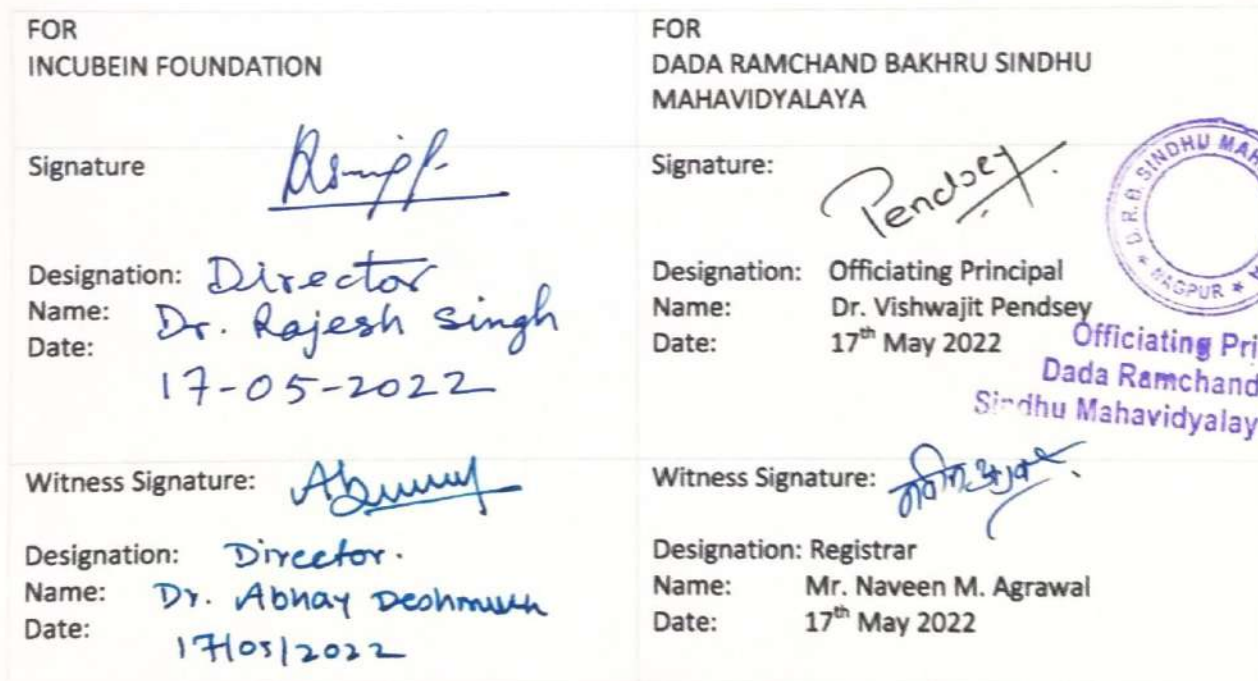 FOR
INCUBEIN FOUNDATION
Signature
Designation: Director
Name: Dr. Rajesh Singh
Date: 17-05-2022
Witness Signature:
Designation: Director.
Name: Dr. Abhay Deshmukh
Date: 17/05/2022
FOR
DADA RAMCHAND BAKHRU SINDHU
MAHAVIDYALAYA
Signature: Pendsey
Designation: Officiating Principal
Name: Dr. Vishwajit Pendsey
Date: 17th May 2022
D. R. B. SINDHU MAH
* NAGPUR *
Officiating Pri
Dada Ramchand
Sindhu Mahavidyalay
Witness Signature:
Designation: Registrar
Name: Mr. Naveen M. Agrawal
Date: 17th May 2022